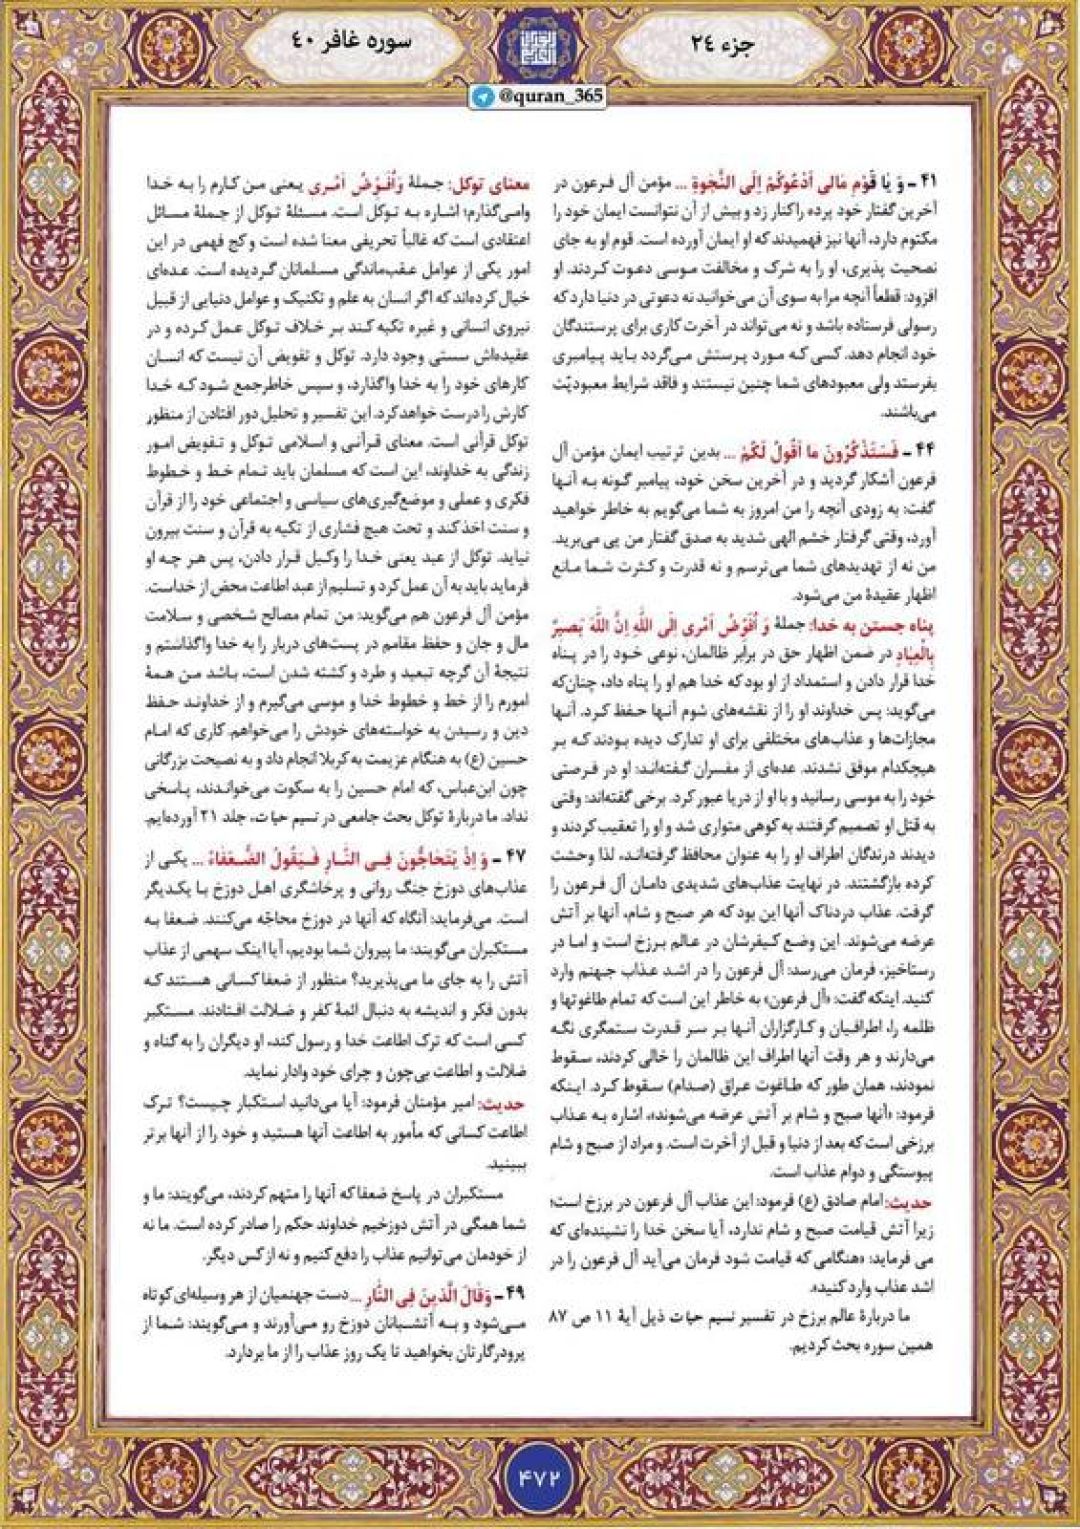 جزء ٢٤
سوره غافر ٤٠
@quran_365
۴۱ - وَ یا قَوْمِ مَالی أَدْعُوکُمْ إِلَی النَّجٰوةِ ... مؤمن آل فرعون در
آخرین گفتار خود پرده را کنار زد و بیش از آن نتوانست ایمان خود را
مکتوم دارد، آنها نیز فهمیدند که او ایمان آورده است. قوم او به جای
نصحیت پذیری، او را به شرک و مخالفت موسی دعوت کردند. او
افزود: قطعاً آنچه مرا به سوی آن می‌خوانید نه دعوتی در دنیا دارد که
رسولی فرستاده باشد و نه می‌تواند در آخرت کاری برای پرستندگان
خود انجام دهد. کسی که مورد پرستش می‌گردد باید پیامبری
بفرستد ولی معبودهای شما چنین نیستند و فاقد شرایط معبودیّت
می‌باشند.
۴۴ - فَسَتَذْکُرُونَ ما أَقُولُ لَکُمْ ... بدین ترتیب ایمان مؤمن آل
فرعون آشکار گردید و در آخرین سخن خود، پیامبر گونه به آنها
گفت: به زودی آنچه را من امروز به شما می‌گویم به خاطر خواهید
آورد، وقتی گرفتار خشم الهی شدید به صدق گفتار من پی می‌برید.
من نه از تهدیدهای شما می‌ترسم و نه قدرت و کثرت شما مانع
اظهار عقیدهٔ من می‌شود.
پناه جستن به خدا: جملهٔ وَ أُفَوِّضُ أَمْری اِلَی اللّٰهِ اِنَّ اللّٰهَ بَصیرٌ
بِالْعِبٰادِ در ضمن اظهار حق در برابر ظالمان، نوعی خود را در پناه
خدا قرار دادن و استمداد از او بود که خدا هم او را پناه داد، چنان‌که
می‌گوید: پس خداوند او را از نقشه‌های شوم آنها حفظ کرد. آنها
مجازات‌ها و عذاب‌های مختلفی برای او تدارک دیده بودند که بر
هیچکدام موفق نشدند. عده‌ای از مفسران گفته‌اند: او در فرصتی
خود را به موسی رسانید و با او از دریا عبور کرد. برخی گفته‌اند: وقتی
به قتل او تصمیم گرفتند به کوهی متواری شد و او را تعقیب کردند و
دیدند درندگان اطراف او را به عنوان محافظ گرفته‌اند، لذا وحشت
کرده بازگشتند. در نهایت عذاب‌های شدیدی دامان آل فرعون را
گرفت. عذاب دردناک آنها این بود که هر صبح و شام، آنها بر آتش
عرضه می‌شوند. این وضع کیفرشان در عالم برزخ است و اما در
رستاخیز، فرمان می‌رسد: آل فرعون را در اشد عذاب جهنم وارد
کنید. اینکه گفت: «آل فرعون» به خاطر این است که تمام طاغوتها و
ظلمه را، اطرافیان و کارگزاران آنها بر سر قدرت ستمگری نگه
می‌دارند و هر وقت آنها اطراف این ظالمان را خالی کردند، سقوط
نمودند، همان طور که طاغوت عراق (صدام) سقوط کرد. اینکه
فرمود: «آنها صبح و شام بر آتش عرضه می‌شوند»، اشاره به عذاب
برزخی است که بعد از دنیا و قبل از آخرت است. و مراد از صبح و شام
پیوستگی و دوام عذاب است.
حدیث: امام صادق (ع) فرمود: این عذاب آل فرعون در برزخ است؛
زیرا آتش قیامت صبح و شام ندارد، آیا سخن خدا را نشینده‌ای که
می فرماید: «هنگامی که قیامت شود فرمان می‌آید آل فرعون را در
اشد عذاب وارد کنید».
ما دربارهٔ عالم برزخ در تفسیر نسیم حیات ذیل آیهٔ ۱۱ ص ۸۷
همین سوره بحث کردیم.
معنای توکل: جملهٔ وَأُفَوِّضُ أَمْری یعنی من کارم را به خدا
وامی‌گذارم؛ اشاره به توکل است. مسئلهٔ توکل از جملهٔ مسائل
اعتقادی است که غالباً تحریفی معنا شده است و کج فهمی در این
امور یکی از عوامل عقب‌ماندگی مسلمانان گردیده است. عده‌ای
خیال کرده‌اند که اگر انسان به علم و تکنیک و عوامل دنیایی از قبیل
نیروی انسانی و غیره تکیه کند بر خلاف توکل عمل کرده و در
عقیده‌اش سستی وجود دارد. توکل و تفویض آن نیست که انسان
کارهای خود را به خدا واگذارد، و سپس خاطرجمع شود که خدا
کارش را درست خواهد کرد. این تفسیر و تحلیل دور افتادن از منظور
توکل قرآنی است. معنای قرآنی و اسلامی توکل و تفویض امور
زندگی به خداوند، این است که مسلمان باید تمام خط و خطوط
فکری و عملی و موضع‌گیری‌های سیاسی و اجتماعی خود را از قرآن
و سنت اخذ کند و تحت هیچ فشاری از تکیه به قرآن و سنت بیرون
نیاید. توکل از عبد یعنی خدا را وکیل قرار دادن، پس هر چه او
فرماید باید به آن عمل کرد و تسلیم از عبد اطاعت محض از خداست.
مؤمن آل فرعون هم می‌گوید: من تمام مصالح شخصی و سلامت
مال و جان و حفظ مقامم در پست‌های دربار را به خدا واگذاشتم و
نتیجهٔ آن گرچه تبعید و طرد و کشته شدن است، باشد من همهٔ
امورم را از خط و خطوط خدا و موسی می‌گیرم و از خداوند حفظ
دین و رسیدن به خواسته‌های خودش را می‌خواهم. کاری که امام
حسین (ع) به هنگام عزیمت به کربلا انجام داد و به نصیحت بزرگانی
چون ابن‌عباس، که امام حسین را به سکوت می‌خواندند، پاسخی
نداد. ما دربارهٔ توکل بحث جامعی در نسیم حیات، جلد ۲۱ آورده‌ایم.
۴۷ - وَ اِذْ یَتَحٰاجُّونَ فِی النّٰارِ فَیَقُولُ الضُّعَفٰاءُ ... یکی از
عذاب‌های دوزخ جنگ روانی و پرخاشگری اهل دوزخ با یکدیگر
است. می‌فرماید: آنگاه که آنها در دوزخ محاجّه می‌کنند. ضعفا به
مستکبران می‌گویند: ما پیروان شما بودیم، آیا اینک سهمی از عذاب
آتش را به جای ما می‌پذیرید؟ منظور از ضعفا کسانی هستند که
بدون فکر و اندیشه به دنبال ائمهٔ کفر و ضلالت افتادند. مستکبر
کسی است که ترک اطاعت خدا و رسول کند، او دیگران را به گناه و
ضلالت و اطاعت بی‌چون و چرای خود وادار نماید.
حدیث: امیر مؤمنان فرمود: آیا می‌دانید استکبار چیست؟ ترک
اطاعت کسانی که مأمور به اطاعت آنها هستید و خود را از آنها برتر
ببینید.
مستکبران در پاسخ ضعفا که آنها را متهم کردند، می‌گویند: ما و
شما همگی در آتش دوزخیم خداوند حکم را صادر کرده است. ما نه
از خودمان می‌توانیم عذاب را دفع کنیم و نه از کس دیگر.
۴۹ - وَقٰالَ الَّذینَ فِی النّٰارِ ... دست جهنمیان از هر وسیله‌ای کوتاه
می‌شود و به آتشبانان دوزخ رو می‌آورند و می‌گویند: شما از
پرودرگارتان بخواهید تا یک روز عذاب را از ما بردارد.
۴۷۲